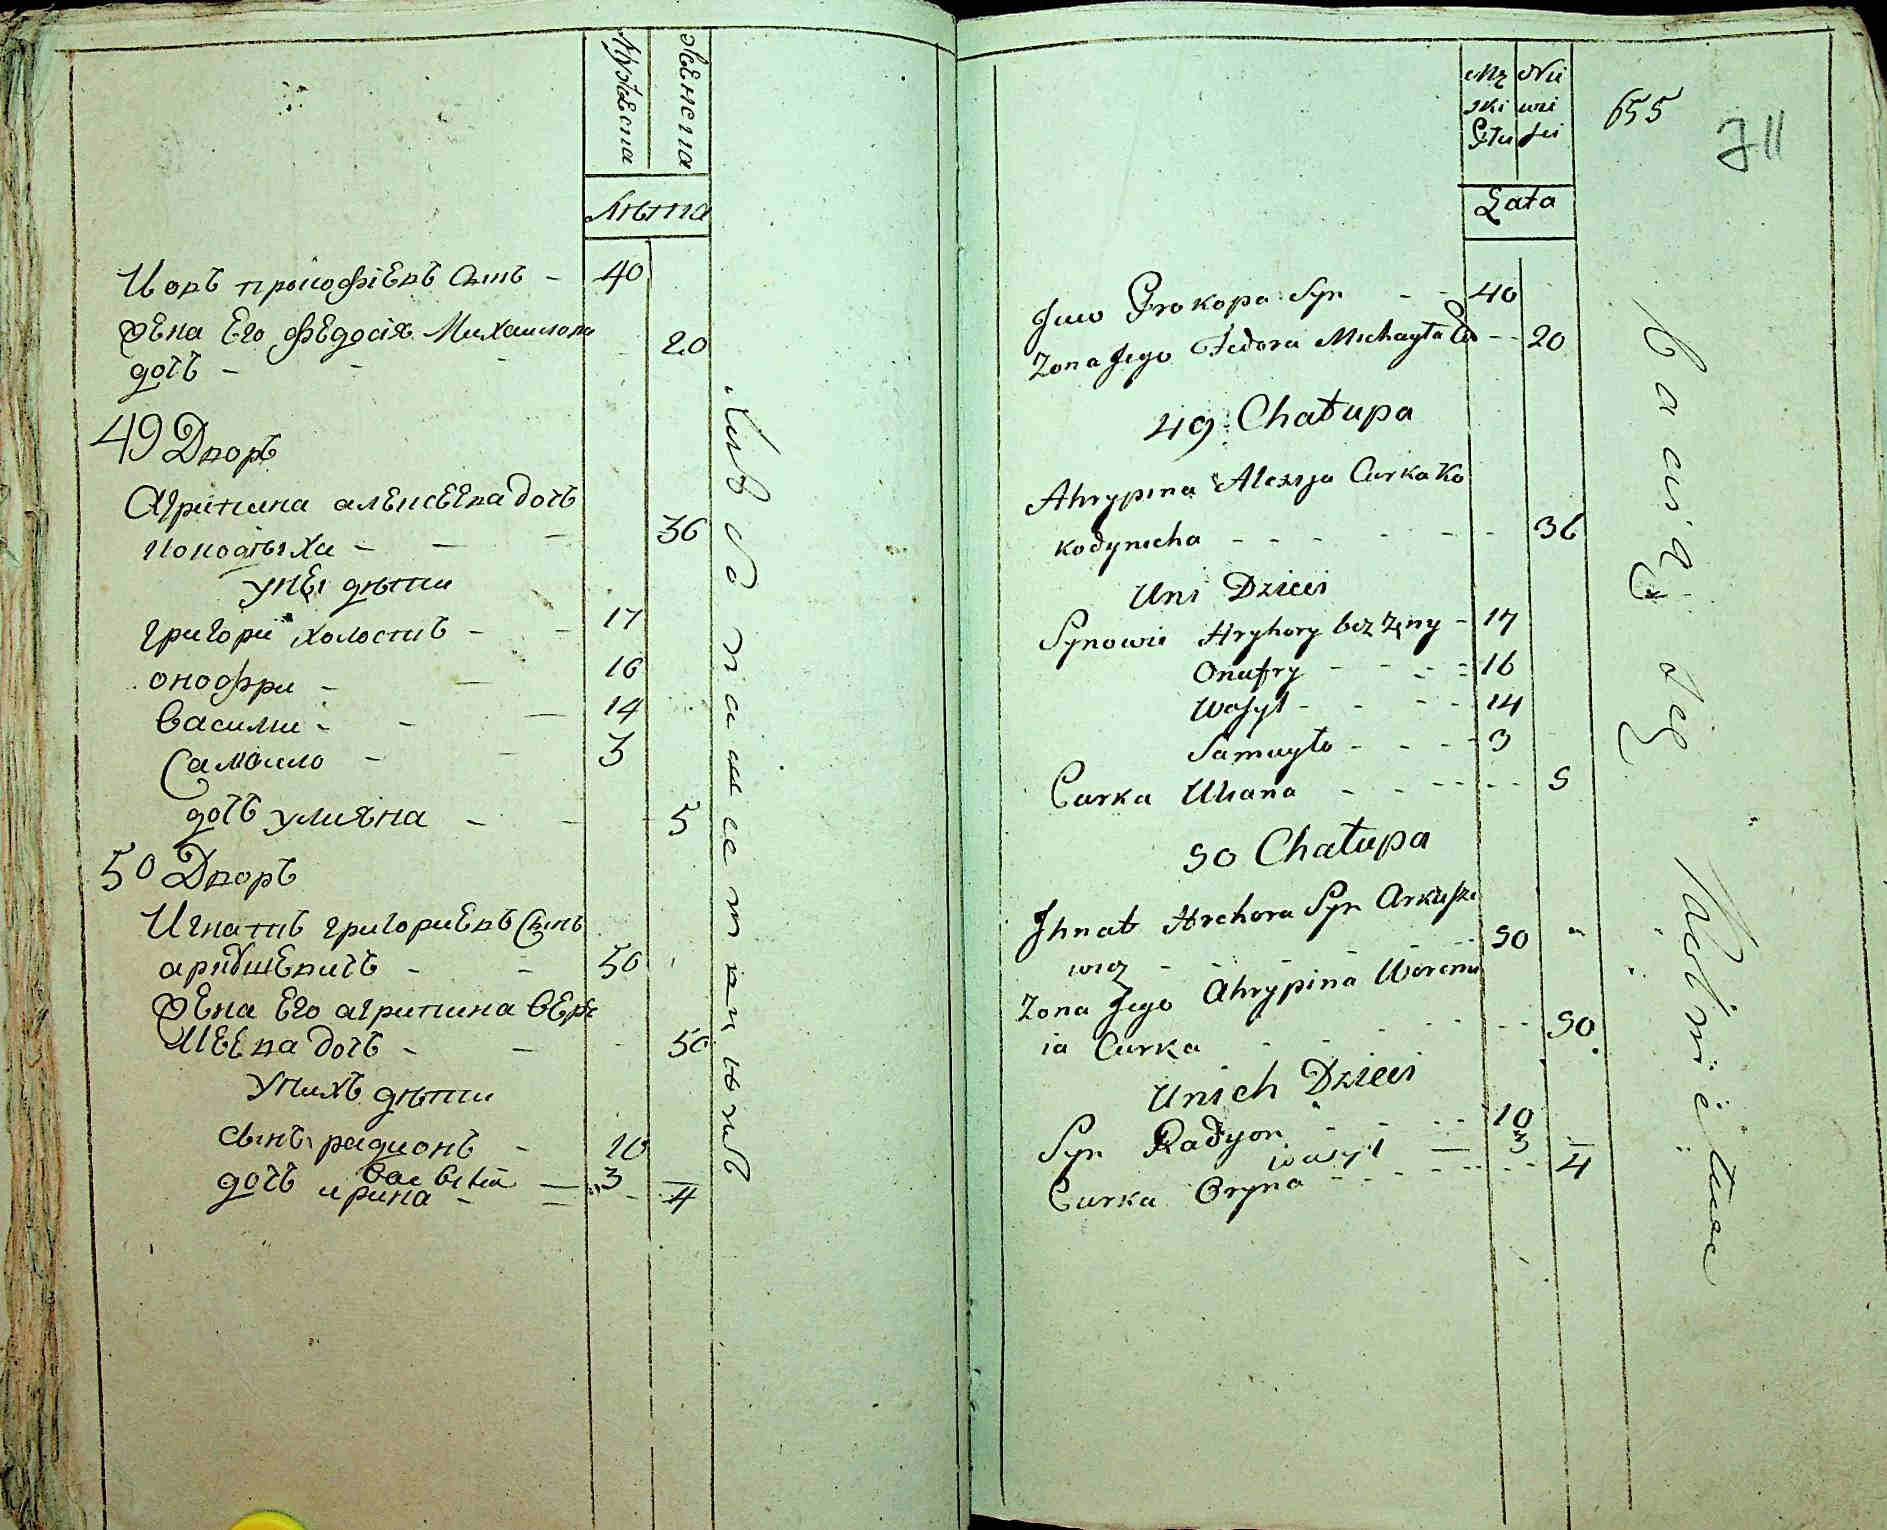 Мужеска
женска
Лѣта
Иовъ прокофіевъ сынъ - 40
жена Его федосія Михаилова
дочь - - 20
49 Дворъ
Агрипина алексеева дочь
кокодыниха - - - 36
у неі дѣти
григори холостъ - - 17
онофри - - 16
василии - - 14
Самоило - - 3
дочь улияна - - 5
50 Дворъ
Игнатъ григориевъ Сынъ
аркушевичъ - - 50
жена Его агрипина Вере
меева дочь - - 50
у нихъ дѣти
сынъ радионъ - 10
василій — 3
дочь ирина - 4
Mę Nie
ski wie
Płu śći
Lata
655
711
Juw Prokopa Syn - - 40
Zona Jego Fedora Michayła Cur - - 20
49 Chałupa
Ahrypina Alexija Curka Ko
kodynicha - - - - - - 36
Uni Dzieci
Synowie Hryhory bez Zęny - 17
Onufry - - - - 16
Wasyl - - - - 14
Samuyło - - - - 3
Curka Uliana - - - - - - 5
50 Chałupa
Ihnat Hrehora Syn Arkusze
wicz - - - - - - 50
Zona Jego Ahrypina Werem
ia Curka - - - - - 50
Unich Dzieci
Syn Radyon - - - - 10
wasyl — 3
Curka Oryna - - - - - - 4